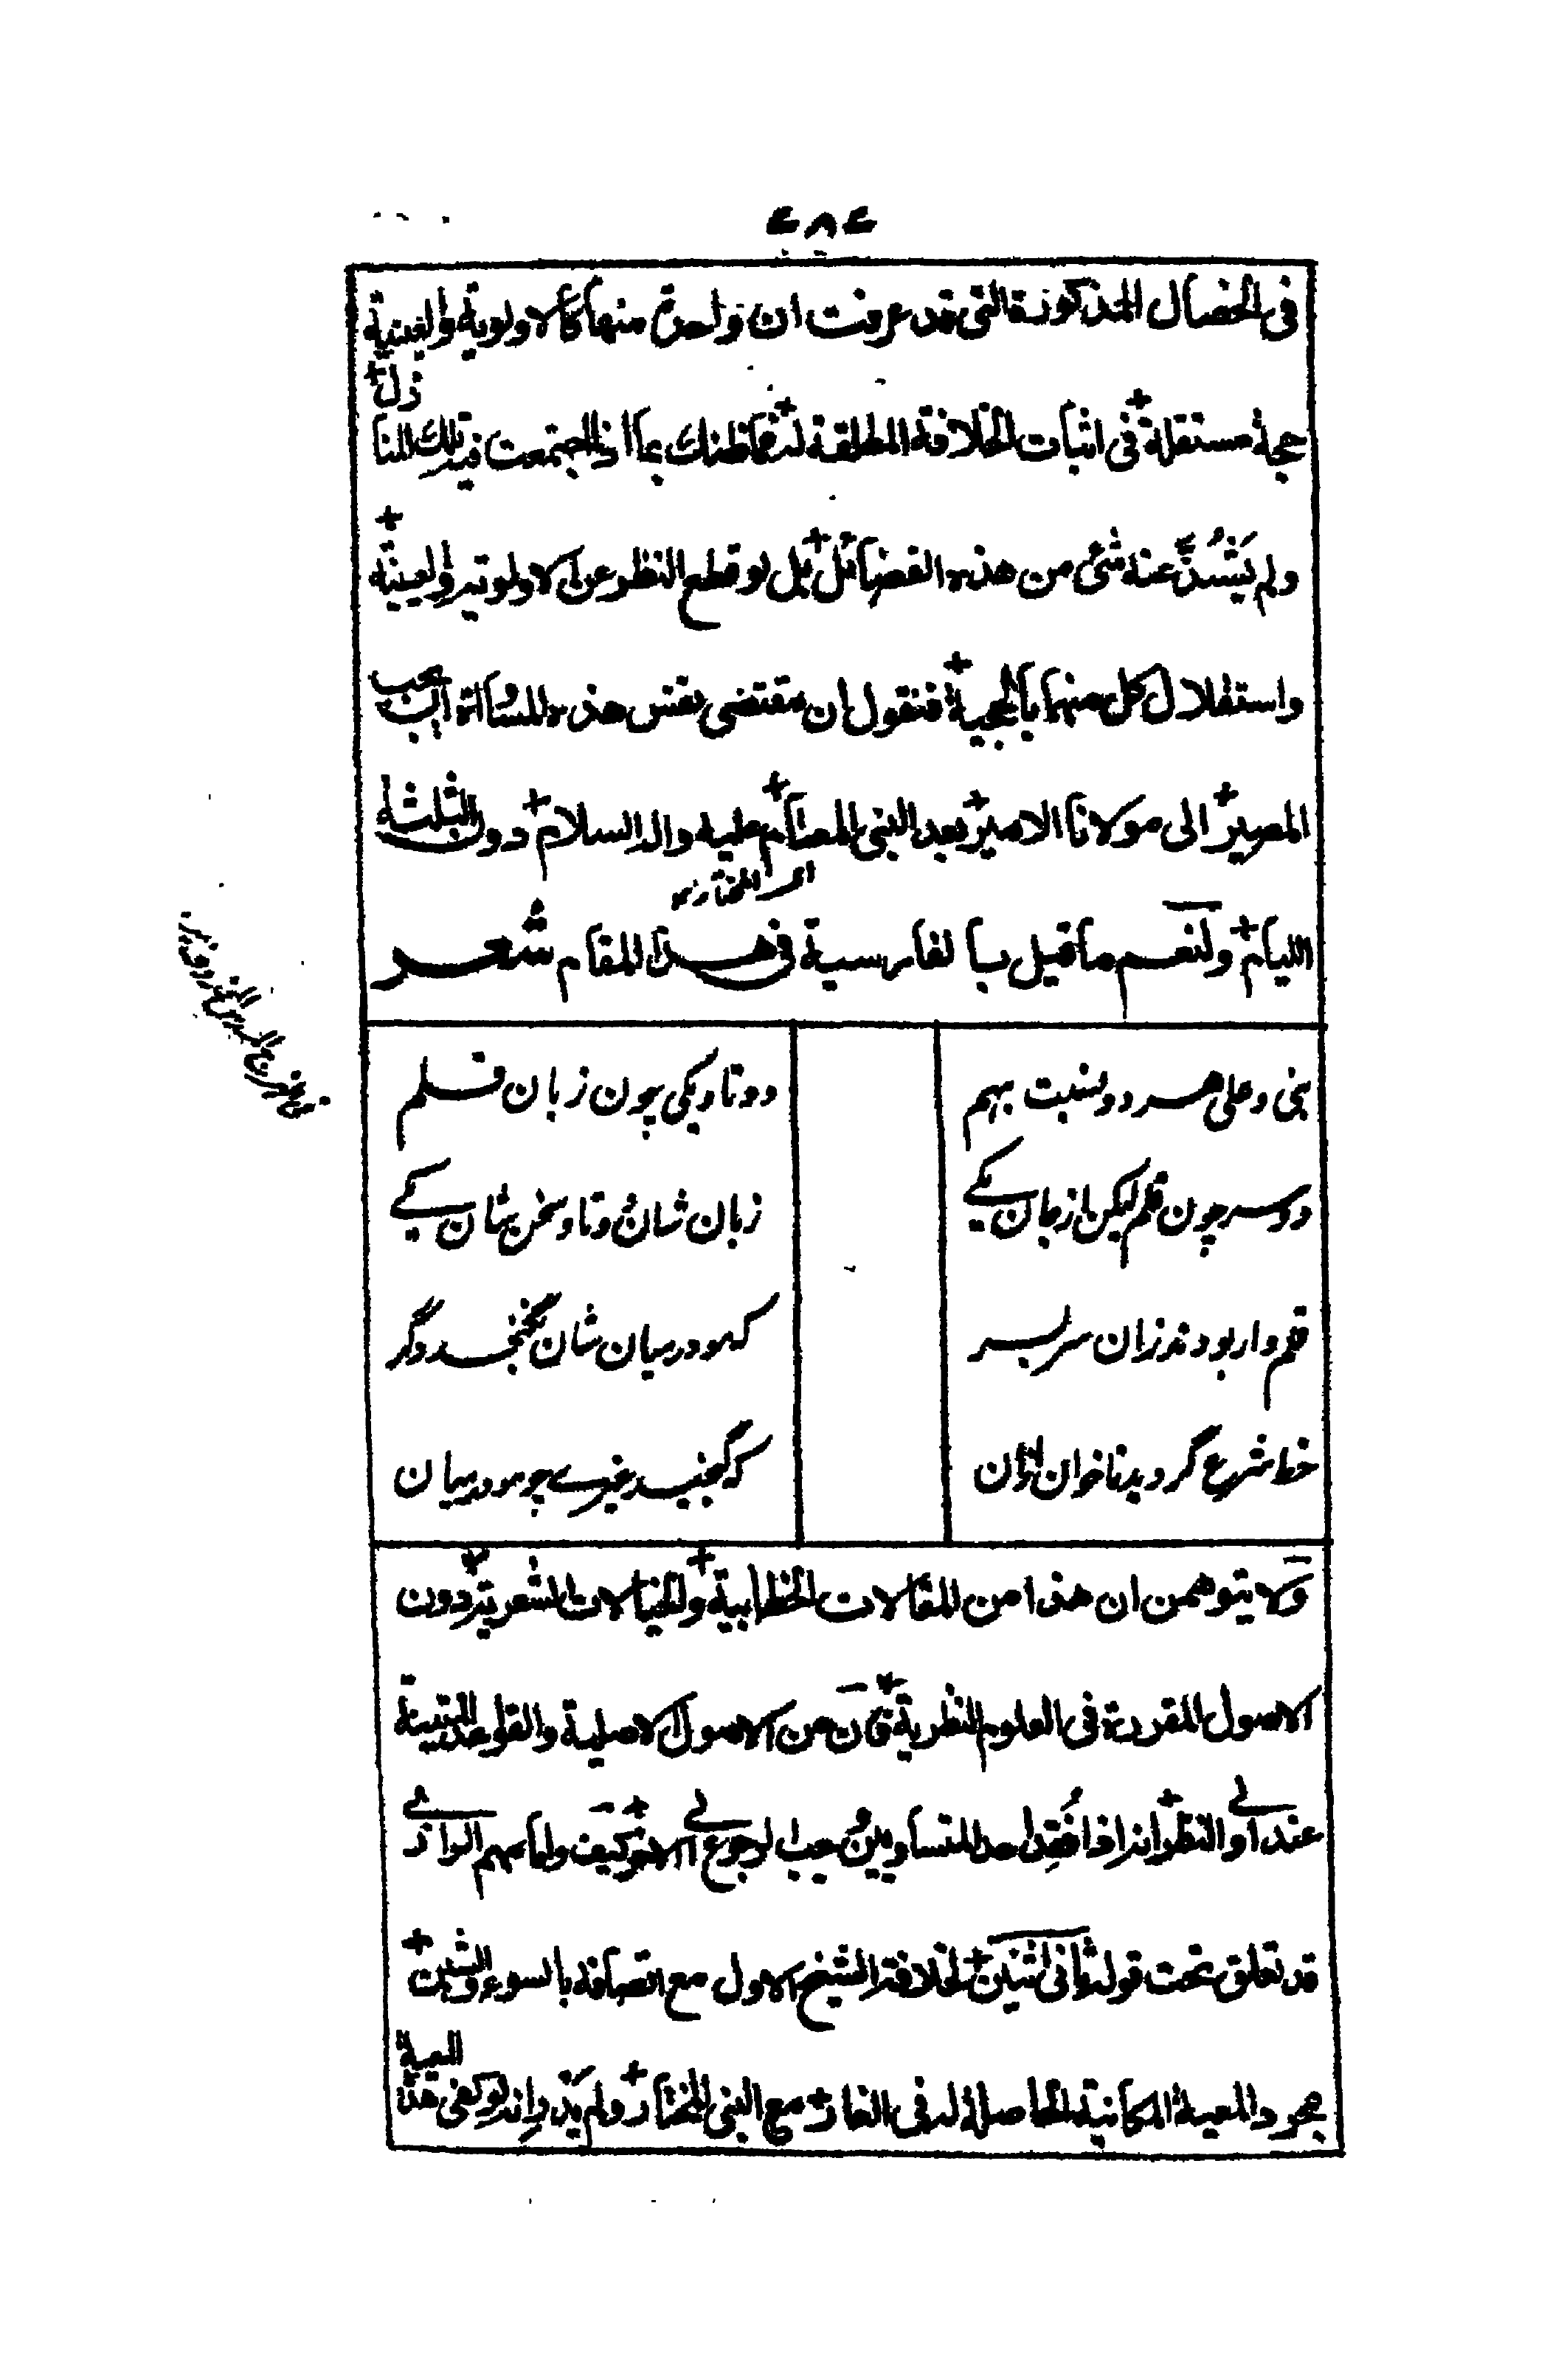 ٤٨٤
فى الخصال المذكورة التى قد عرفت ان واحدة منها كالاولوية والعينية
حجة مستقلة فى اثبات الخلافة المطلقة له فما ظنك بما اذا اجتمعت فيه تلك المنازل
ولم يَشُذَّ عنه شئ من هذه الفضائل بل لو قطع النظر عن الاولوية والعينية
واستقلال كل منهما بالحجية فنقول ان مقتضى نفس هذه المساواة
المصير الى مولانا الامير بعد النبى عليه واله السلام دون الثلثة
الليام ولنعم ما قيل بالفارسية فى هذا المقام شعر
نبى و على هر دو نسبت بهم
دو تا و يكى چون زبان قلم
دو سر چون قلم ليكن از جان يكے
زبان شان دو تا و سخن شان يكے
قلم وار بودند زان سر بسر
كه مو در ميان شان نگنجد دگر
خط شرع گرديد تا خوان
كه گنجد غيرے چو مو در ميان
ولا يتوهمن ان هذا من المقالات الخطابية والخيالات الشعرية دون
الاصول المقررة فى العلوم النظرية فان من الاصول الاصلية والقواعد المتينة
عند اولى النظر انه اذا فُقِد احد المتساويين يجب الرجوع الى الاخر كيف وامامهم الرازى
قد تعلق تحت قوله ثانى اثنين لخلافة الشيخ الاول مع اتصافه بالسوء والشين
بمجرد المعية المكانية الحاصلة له فى الغار مع النبى المختار ولم يدر انه لو كفى هذه المعية